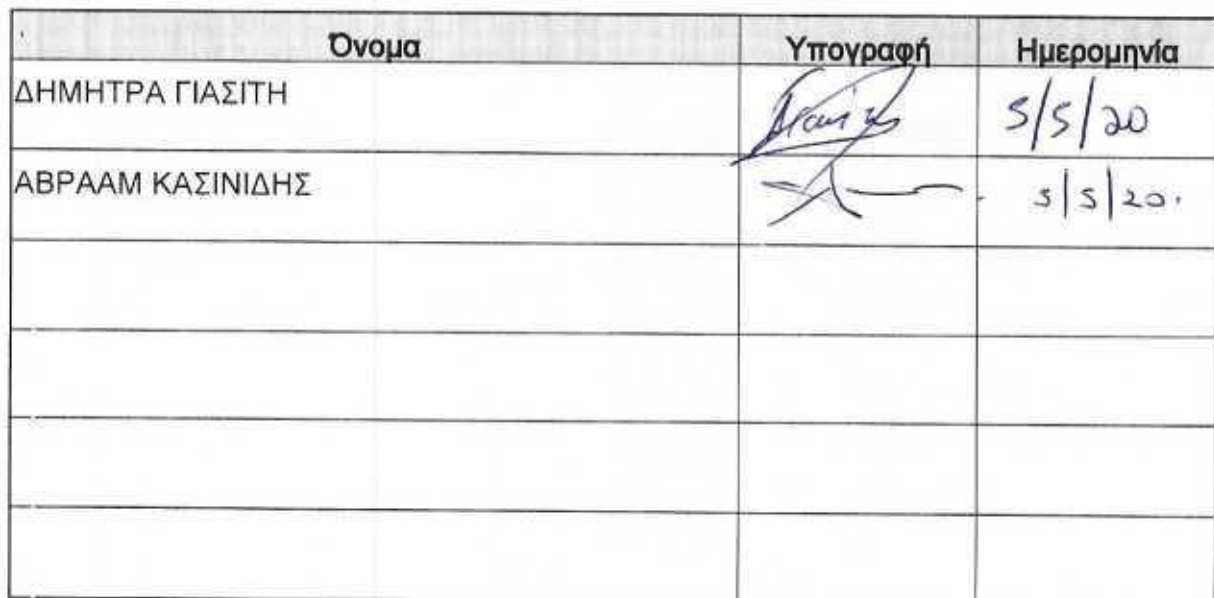 Όνομα Υπογραφή Ημερομηνία
ΔΗΜΗΤΡΑ ΓΙΑΣΙΤΗ 5/5/20
ΑΒΡΑΑΜ ΚΑΣΙΝΙΔΗΣ 5/5/20.